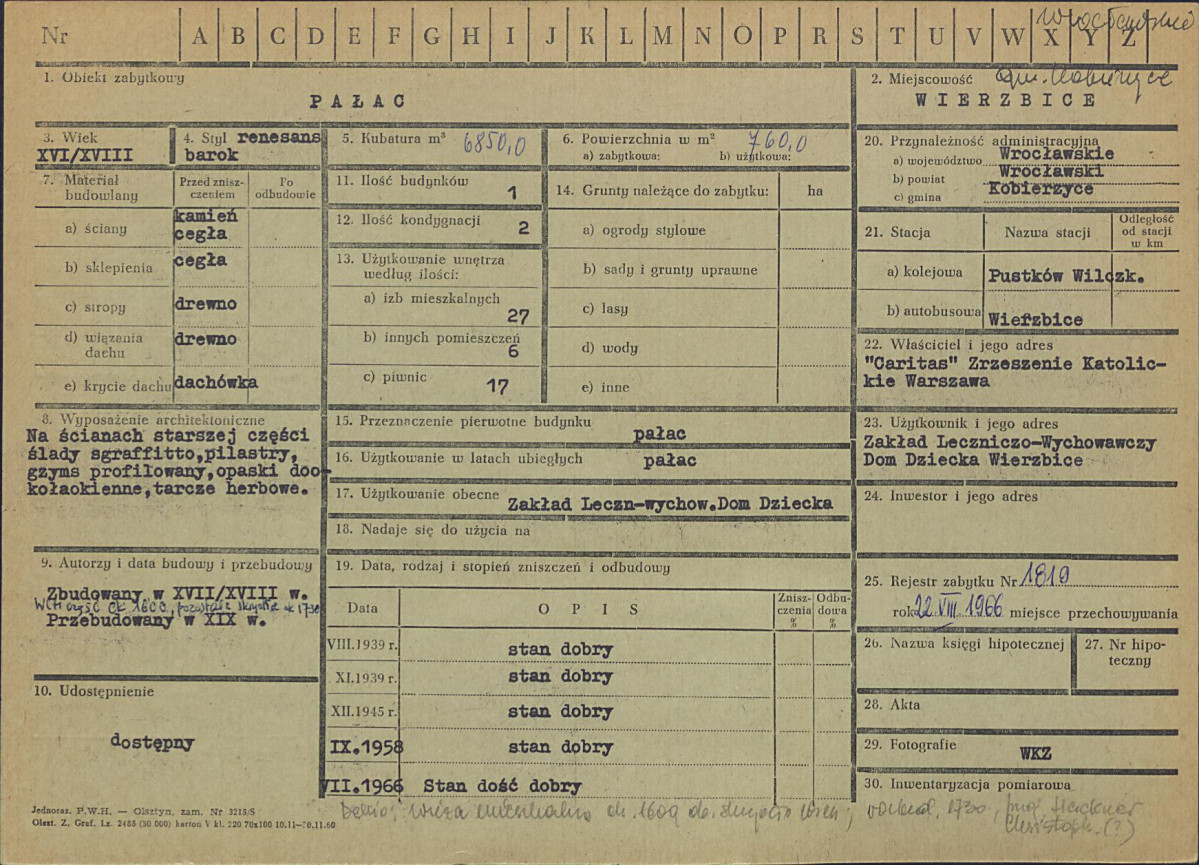 Nr A B C D E F G H I J K L M N O P R S T U V W X Y Z
1. Obiekt zabytkowy
PAŁAC
2. Miejscowość gm. Kobierzyce
WIERZBICE
3. Wiek
XVI/XVIII
4. Styl renesans
barok
5. Kubatura m³ 6850,0
6. Powierzchnia w m² 760,0
a) zabytkowa: b) użytkowa:
7. Materiał budowlany
Przed zniszczeniem
Po odbudowie
a) ściany kamień
cegła
b) sklepienia cegła
c) stropy drewno
d) wiązania dachu drewno
e) krycie dachu dachówka
8. Wyposażenie architektoniczne
Na ścianach starszej części
ślady sgraffitto,pilastry,
gzyms profilowany,opaski doo-
kołaokienne,tarcze herbowe.
9. Autorzy i data budowy i przebudowy
Zbudowany w XVII/XVIII w.
Przebudowany w XIX w.
10. Udostępnienie
dostępny
11. Ilość budynków 1
12. Ilość kondygnacji 2
13. Użytkowanie wnętrza
według ilości:
a) izb mieszkalnych
27
b) innych pomieszczeń
6
c) piwnic 17
14. Grunty należące do zabytku: ha
a) ogrody stylowe
b) sady i grunty uprawne
c) lasy
d) wody
e) inne
15. Przeznaczenie pierwotne budynku
pałac
16. Użytkowanie w latach ubiegłych pałac
17. Użytkowanie obecne Zakład Leczn-wychow.Dom Dziecka
18. Nadaje się do użycia na
19. Data, rodzaj i stopień zniszczeń i odbudowy
Data OPIS Zniszczenia % Odbudowa %
VIII.1939 r. stan dobry
XI.1939 r. stan dobry
XII.1945 r. stan dobry
IX.1958 stan dobry
VII.1966 Stan dość dobry
20. Przynależność administracyjna
a) województwo Wrocławskie
b) powiat Wrocławski
c) gmina Kobierzyce
21. Stacja Nazwa stacji Odległość od stacji w km
a) kolejowa Pustków Wilczk.
b) autobusowa Wierzbice
22. Właściciel i jego adres
"Caritas" Zrzeszenie Katolic-
kie Warszawa
23. Użytkownik i jego adres
Zakład Leczniczo-Wychowawczy
Dom Dziecka Wierzbice
24. Inwestor i jego adres
25. Rejestr zabytku Nr 1819
roku 22 VIII 1966 miejsce przechowywania
26. Nazwa księgi hipotecznej
27. Nr hipo-
teczny
28. Akta
29. Fotografie WKZ
30. Inwentaryzacja pomiarowa
Jednoraz. P.W.H. — Olsztyn, zam. Nr 3215/S
Olszt. Z. Graf. Lz. 2485 (30 000) karton V kl. 220 70x100 10.11—20.11.60